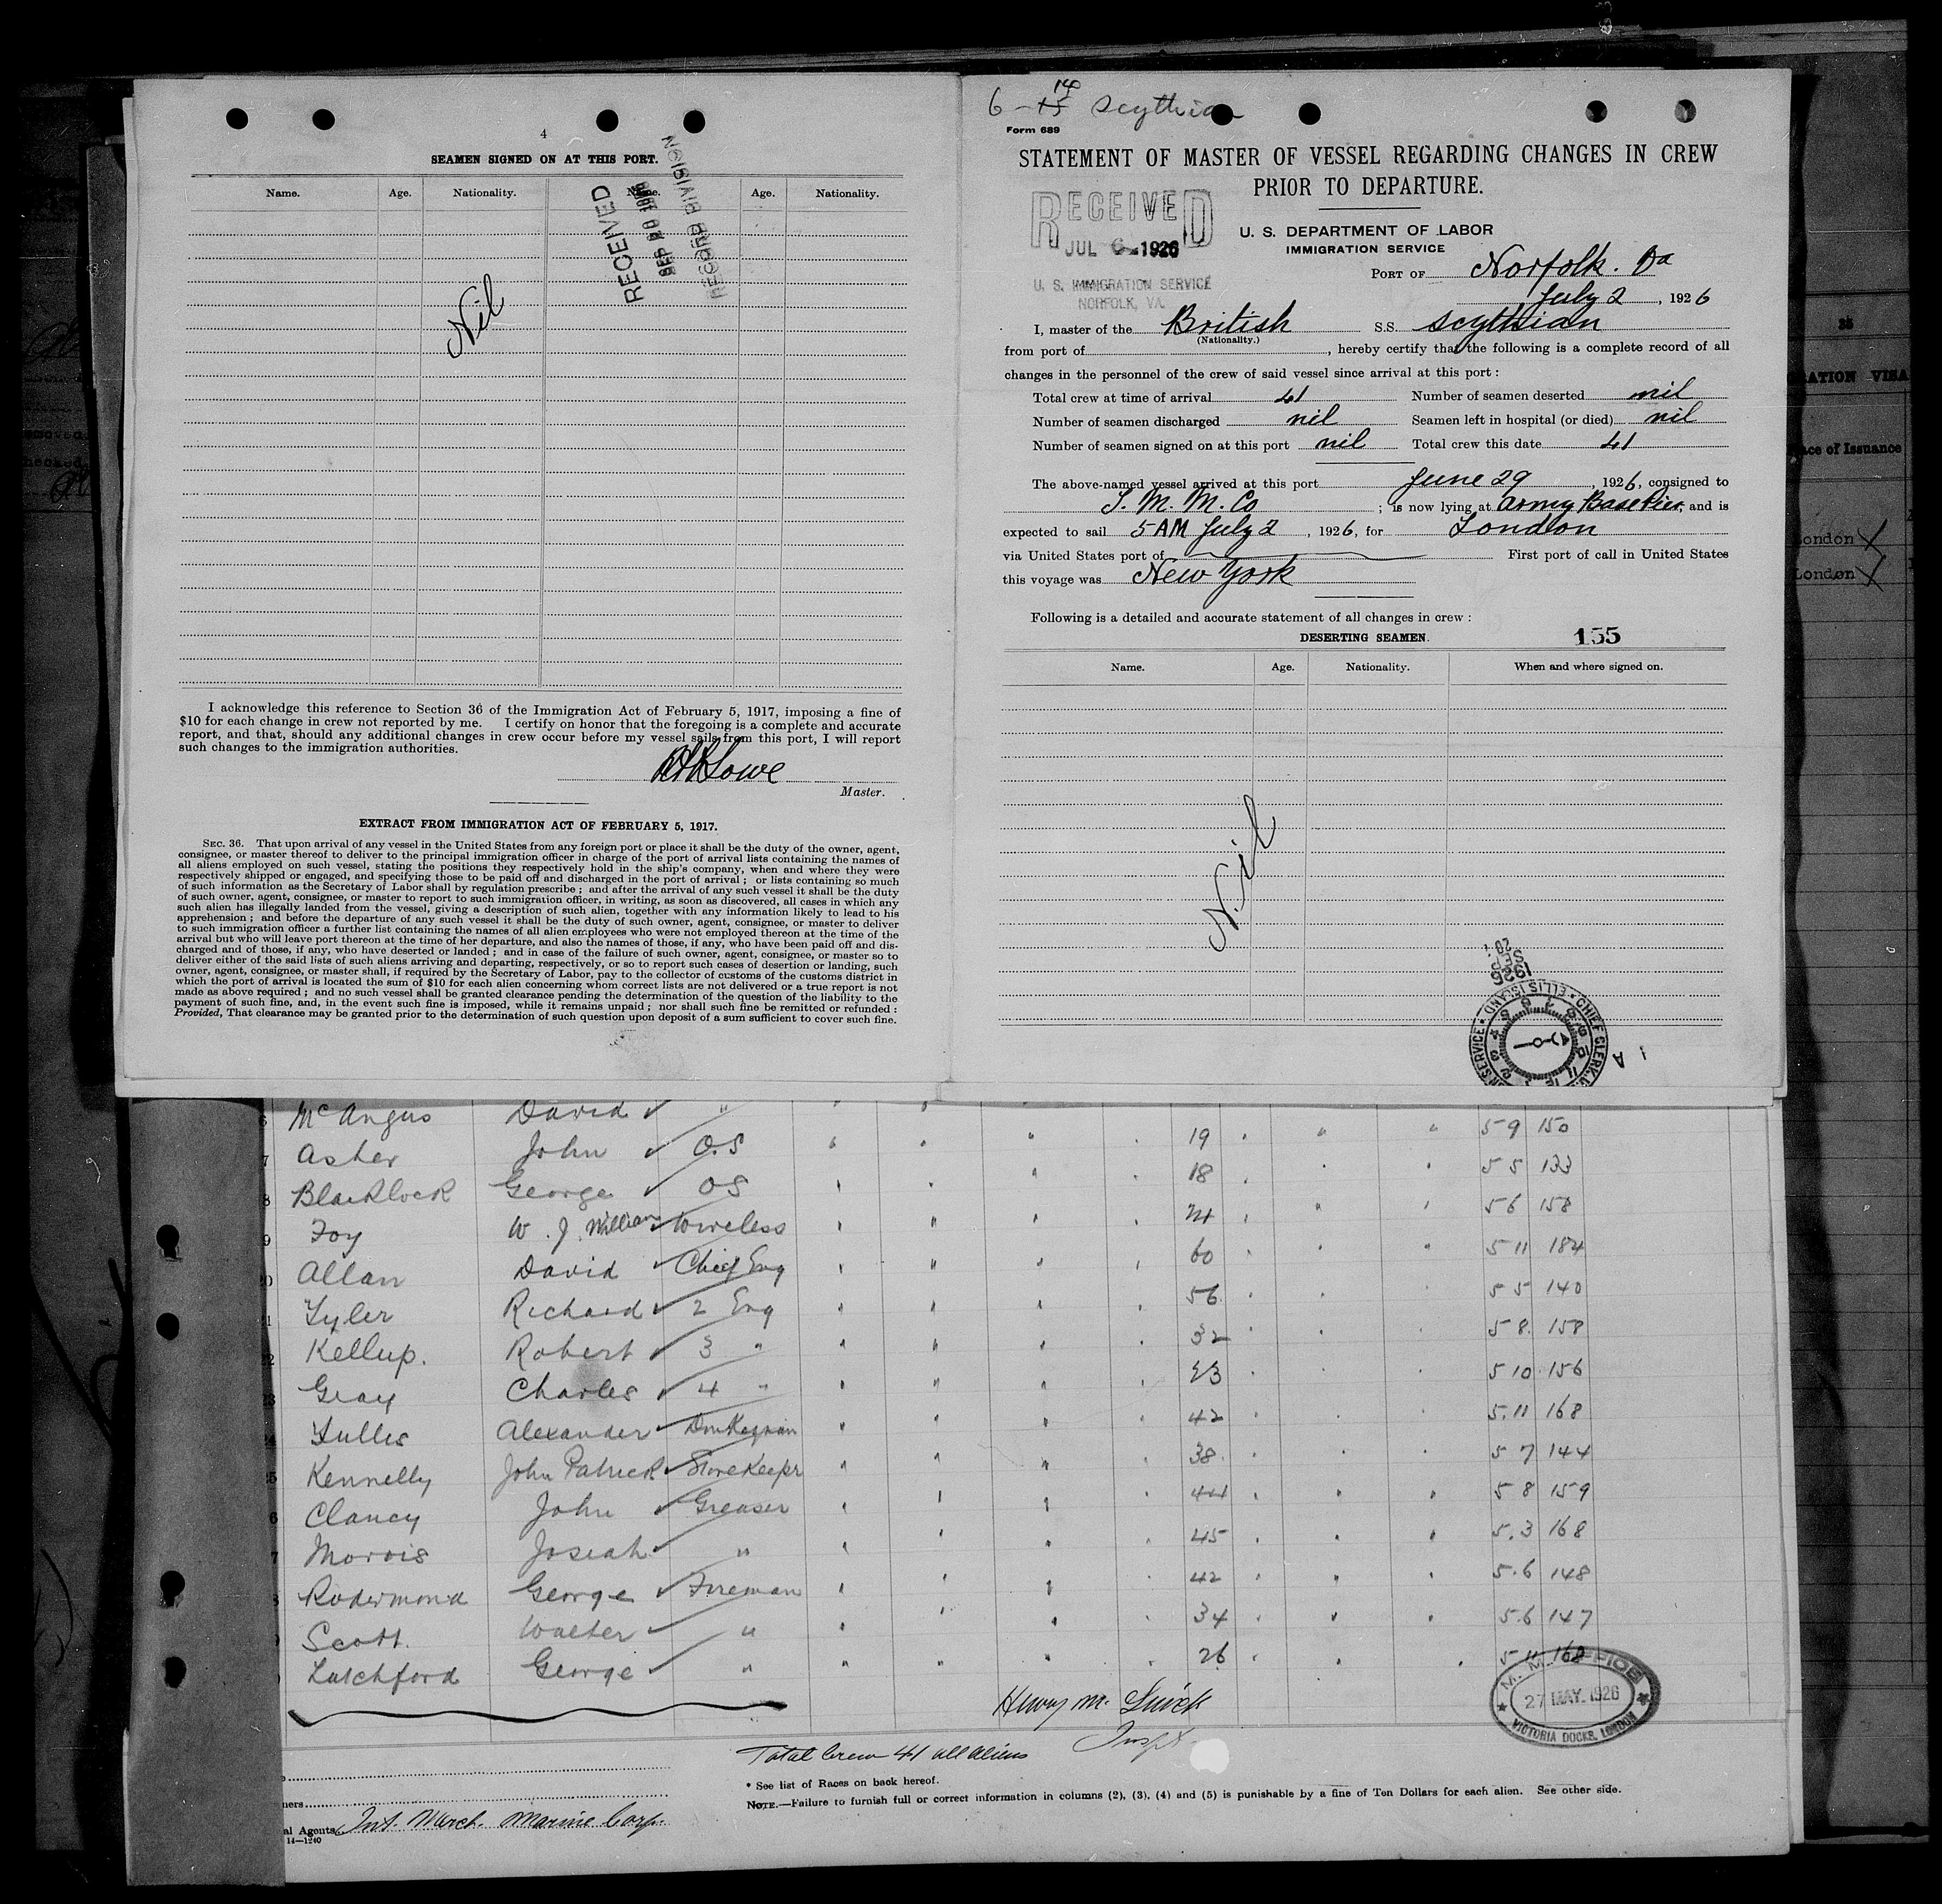 4
SEAMEN SIGNED ON AT THIS PORT.
Name. Age. Nationality. Name. Age. Nationality.
RECEIVED
SEP 20 1926
RECORD DIVISION
Nil
I acknowledge this reference to Section 36 of the Immigration Act of February 5, 1917, imposing a fine of
$10 for each change in crew not reported by me. I certify on honor that the foregoing is a complete and accurate
report, and that, should any additional changes in crew occur before my vessel sails from this port, I will report
such changes to the immigration authorities.
Lowe
Master.
EXTRACT FROM IMMIGRATION ACT OF FEBRUARY 5, 1917.
SEC. 36. That upon arrival of any vessel in the United States from any foreign port or place it shall be the duty of the owner, agent,
consignee, or master thereof to deliver to the principal immigration officer in charge of the port of arrival lists containing the names of
all aliens employed on such vessel, stating the positions they respectively hold in the ship's company, when and where they were
respectively shipped or engaged, and specifying those to be paid off and discharged in the port of arrival; or lists containing so much
of such information as the Secretary of Labor shall by regulation prescribe; and after the arrival of any such vessel it shall be the duty
of such owner, agent, consignee, or master to report to such immigration officer, in writing, as soon as discovered, all cases in which any
such alien has illegally landed from the vessel, giving a description of such alien, together with any information likely to lead to his
apprehension; and before the departure of any such vessel it shall be the duty of such owner, agent, consignee, or master to deliver
to such immigration officer a further list containing the names of all alien employees who were not employed thereon at the time of the
arrival but who will leave port thereon at the time of her departure, and also the names of those, if any, who have been paid off and dis-
charged and of those, if any, who have deserted or landed; and in case of the failure of such owner, agent, consignee, or master so to
deliver either of the said lists of such aliens arriving and departing, respectively, or so to report such cases of desertion or landing, such
owner, agent, consignee, or master shall, if required by the Secretary of Labor, pay to the collector of customs of the customs district in
which the port of arrival is located the sum of $10 for each alien concerning whom correct lists are not delivered or a true report is not
made as above required; and no such vessel shall be granted clearance pending the determination of the question of the liability to the
payment of such fine, and, in the event such fine is imposed, while it remains unpaid; nor shall such fine be remitted or refunded:
Provided, That clearance may be granted prior to the determination of such question upon deposit of a sum sufficient to cover such fine.
6-15 14 Scythian
Form 689
STATEMENT OF MASTER OF VESSEL REGARDING CHANGES IN CREW
PRIOR TO DEPARTURE.
RECEIVED
JUL 6-1926
U. S. IMMIGRATION SERVICE
NORFOLK, VA.
U. S. DEPARTMENT OF LABOR
IMMIGRATION SERVICE
PORT OF Norfolk. Va
July 2, 1926
I, master of the British S.S. Scythian
(Nationality.)
from port of , hereby certify that the following is a complete record of all
changes in the personnel of the crew of said vessel since arrival at this port:
Total crew at time of arrival 41 Number of seamen deserted nil
Number of seamen discharged nil Seamen left in hospital (or died) nil
Number of seamen signed on at this port nil Total crew this date 41
The above-named vessel arrived at this port June 29, 1926, consigned to
I. M. M. Co ; is now lying at Army Base Pier, and is
expected to sail 5 AM July 2, 1926, for London
via United States port of First port of call in United States
this voyage was New York
Following is a detailed and accurate statement of all changes in crew:
DESERTING SEAMEN. 155
Name. Age. Nationality. When and where signed on.
Nil
1926 SEP 20
CHIEF CLERK, U. ELLIS ISLAND SERVICE
35
RATION VISA
ce of Issuance
London X
London X
McAngus David ✓ "
Asher John ✓ O.S " " " " 19 " " " 5 9 150
Blacklock George ✓ OS " " " 18 " " 5 5 133
Foy W. J. William ✓ Wireless " " " " 21 " " " 5 6 158
Allan David ✓ Chief Eng " " " " 60 " " " 5 11 184
Tyler Richard ✓ 2 Eng " " " " 56 " " " 5 5 140
Kellup. Robert ✓ 3 " " " " 32 " " " 5 8 158
Gray Charles ✓ 4 " " " " " 23 " " " 5 10 156
Tullis Alexander ✓ Donkeyman " " " " 42 " " " 5.11 168
Kennelly John Patrick ✓ StoreKeepr " " " " 38 " " " 5 7 144
Clancy John ✓ Greaser " " " " 44 " " " 5 8 159
Morris Josiah ✓ " " " " " 45 " " " 5.3 168
Rodermond George ✓ Fireman " " " " 42 " " " 5.6 148
Scott. Walter ✓ " " " " " 34 " " " 5.6 147
Latchford George ✓ " " " " " 26 " " " 5 11 168
Henry M.
Inspt
M. M. OFFICE
27 MAY. 1926
VICTORIA DOCKS, LONDON
Total Crew 41 all aliens
* See list of Races on back hereof.
NOTE.—Failure to furnish full or correct information in columns (2), (3), (4) and (5) is punishable by a fine of Ten Dollars for each alien. See other side.
ners
al Agents Int. Merch. Marine Corp.
14—1240